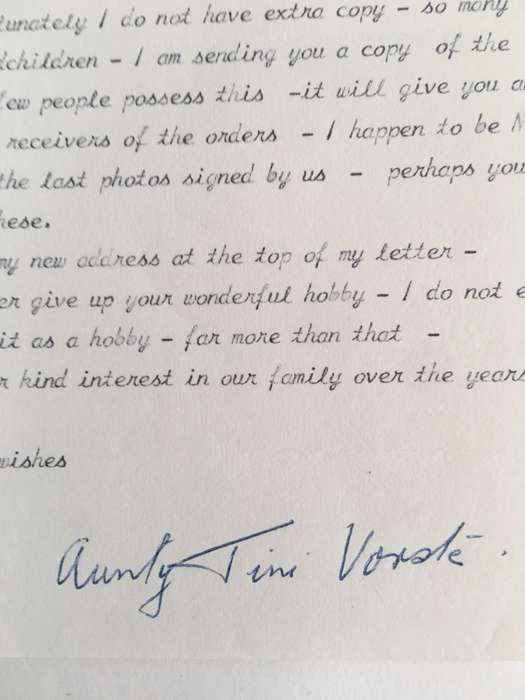 tunately I do not have extra copy - so many
dchildren - I am sending you a copy of the
few people possess this -it will give you a
receivers of the orders - I happen to be
the last photos signed by us - perhaps you
hese.
my new address at the top of my letter -
er give up your wonderful hobby - I do not e
it as a hobby - far more than that -
r kind interest in our family over the years
wishes
Aunty Tini Vorsté.